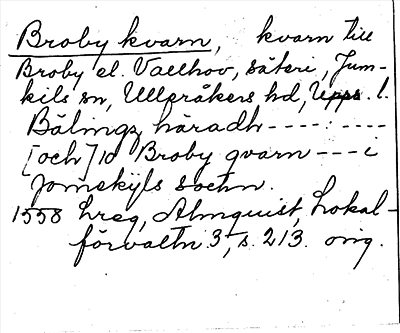 Broby kvarn, kvarn till
Broby el. Vallhov, säteri, Jum-
kils sn, Ulleråkers hd, Upps. l.
Bälings häradh---- ----
[och] 10 Broby qvarn --- i
Jomskijls sochn.
1558 Lreg, Almquist, Lokal-
förvaltn 3, s. 213. orig.